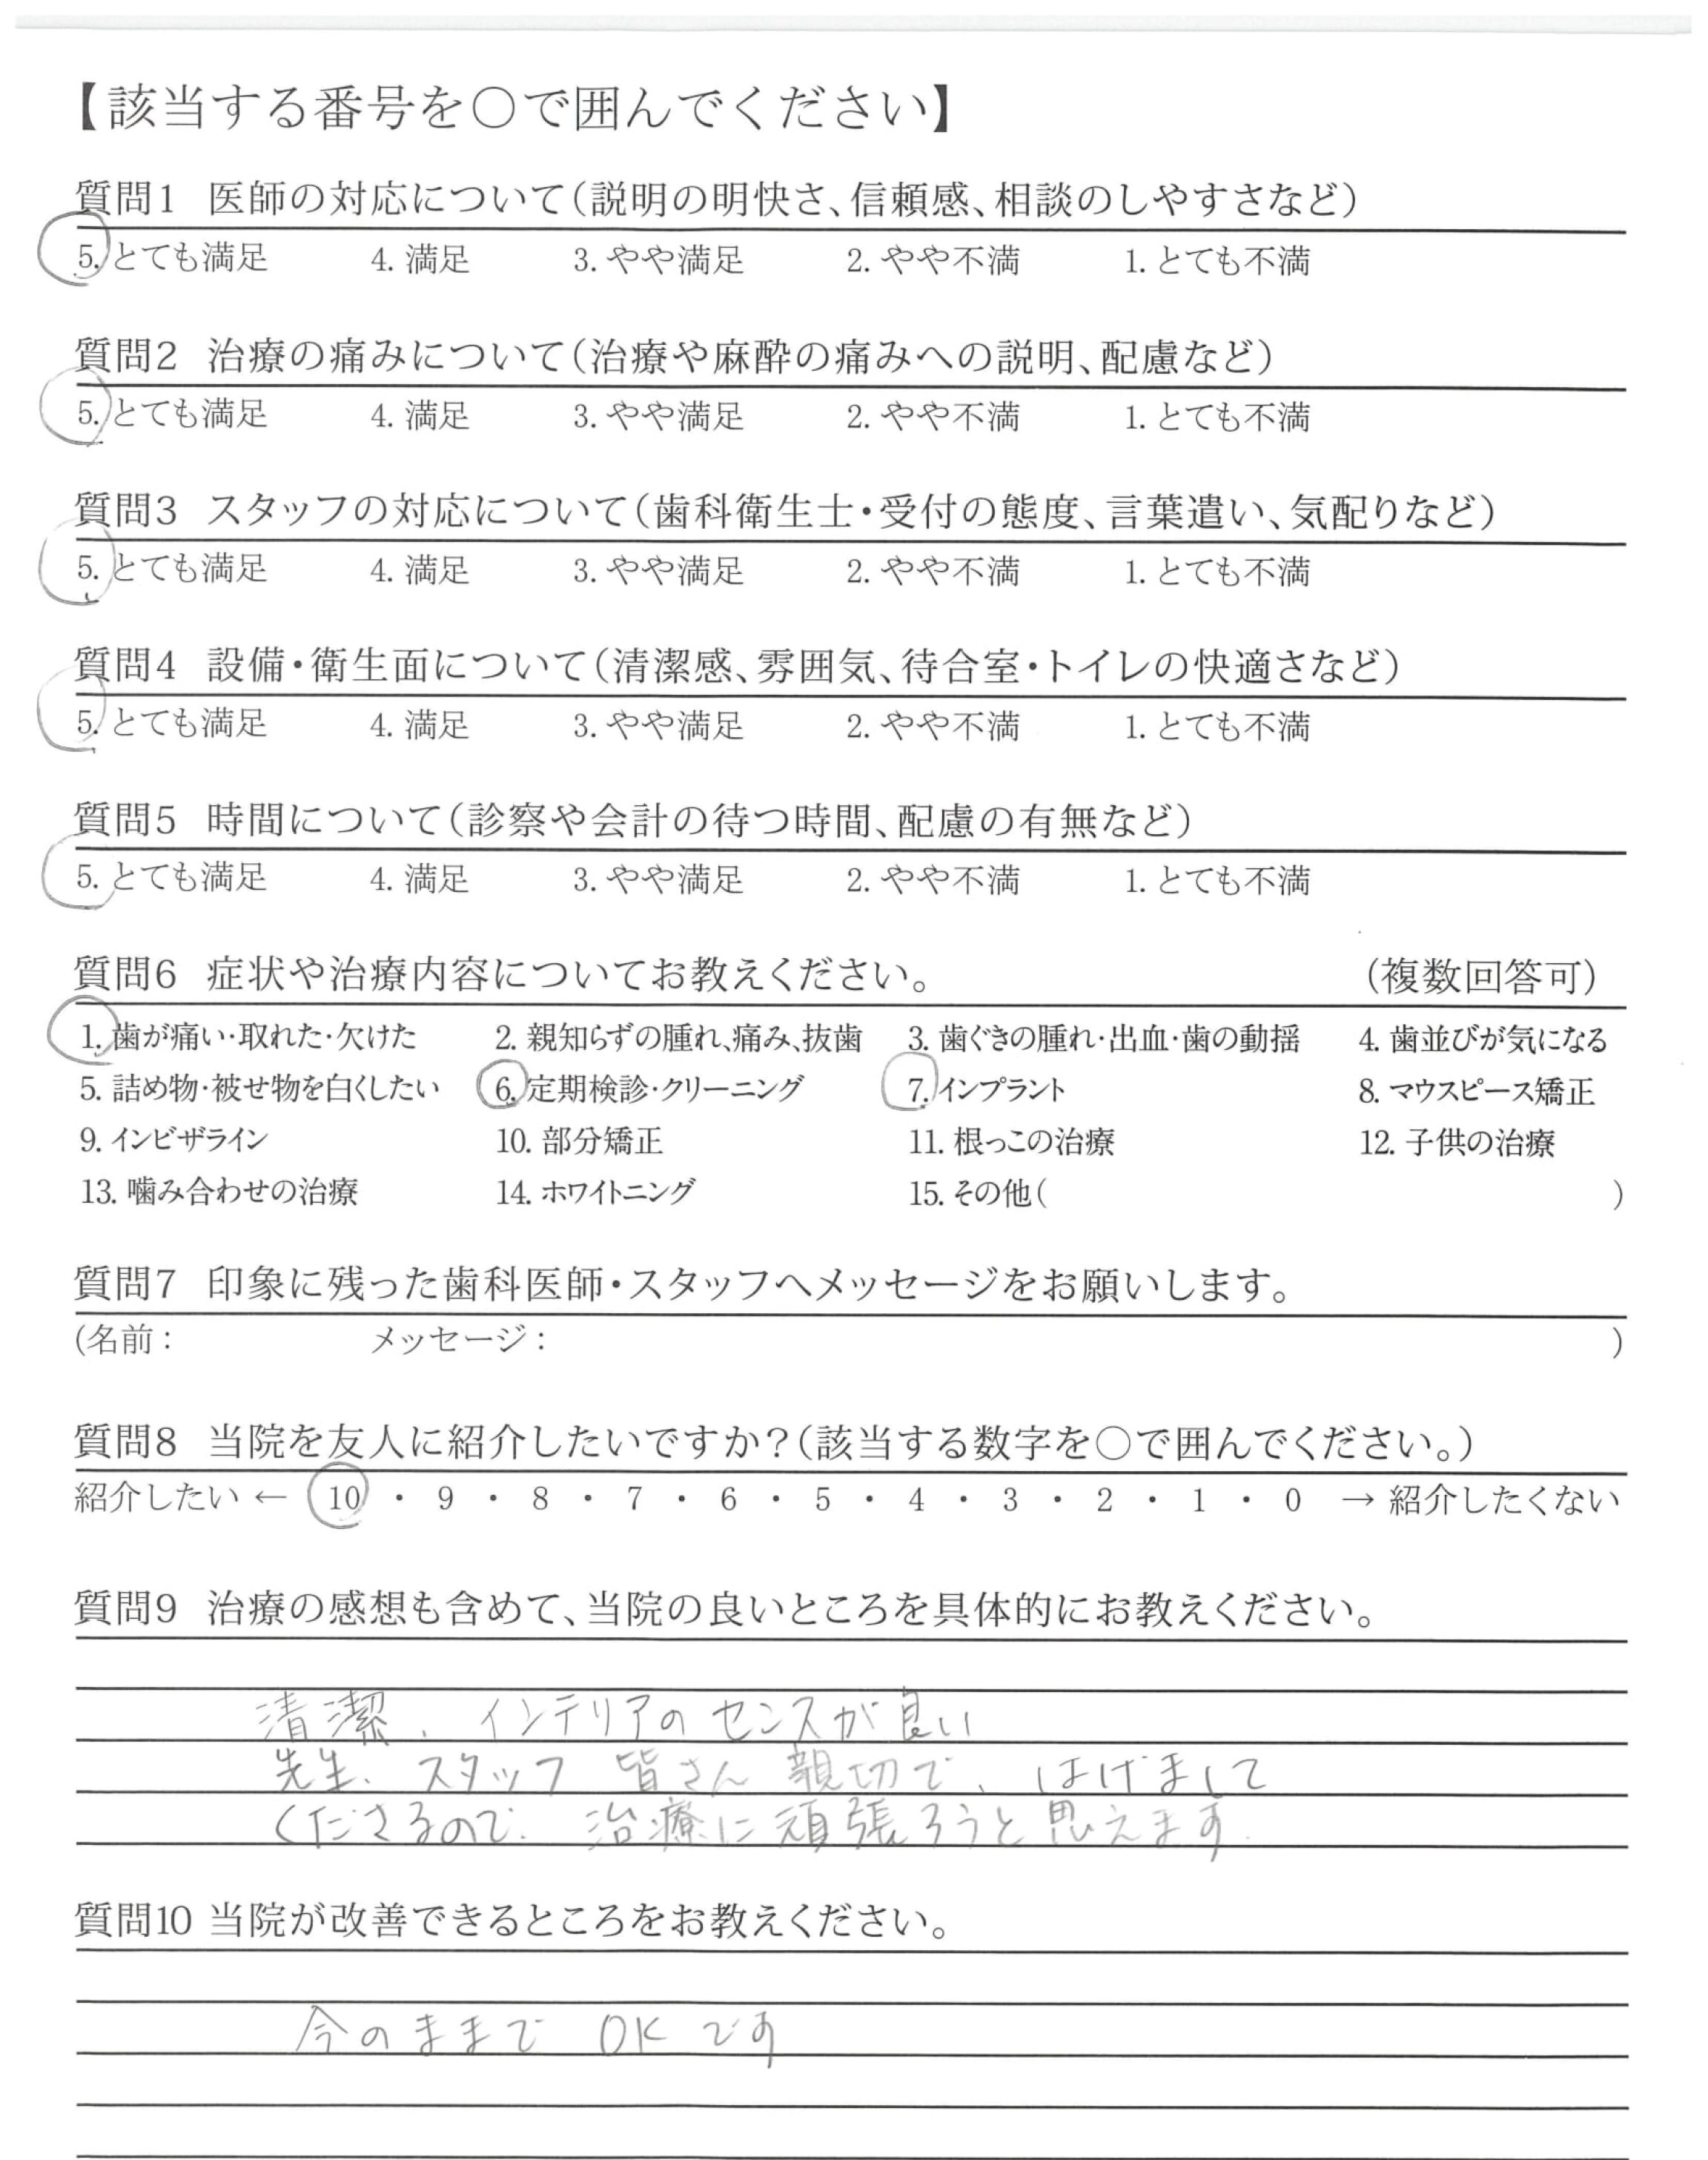 【該当する番号を○で囲んでください】
質問1 医師の対応について(説明の明快さ、信頼感、相談のしやすさなど)
5. とても満足 4. 満足 3. やや満足 2. やや不満 1. とても不満
質問2 治療の痛みについて(治療や麻酔の痛みへの説明、配慮など)
5. とても満足 4. 満足 3. やや満足 2. やや不満 1. とても不満
質問3 スタッフの対応について(歯科衛生士・受付の態度、言葉遣い、気配りなど)
5. とても満足 4. 満足 3. やや満足 2. やや不満 1. とても不満
質問4 設備・衛生面について(清潔感、雰囲気、待合室・トイレの快適さなど)
5. とても満足 4. 満足 3. やや満足 2. やや不満 1. とても不満
質問5 時間について(診察や会計の待つ時間、配慮の有無など)
5. とても満足 4. 満足 3. やや満足 2. やや不満 1. とても不満
質問6 症状や治療内容についてお教えください。 (複数回答可)
1. 歯が痛い・取れた・欠けた 2. 親知らずの腫れ、痛み、抜歯 3. 歯ぐきの腫れ・出血・歯の動揺 4. 歯並びが気になる
5. 詰め物・被せ物を白くしたい 6. 定期検診・クリーニング 7. インプラント 8. マウスピース矯正
9. インビザライン 10. 部分矯正 11. 根っこの治療 12. 子供の治療
13. 噛み合わせの治療 14. ホワイトニング 15. その他( )
質問7 印象に残った歯科医師・スタッフへメッセージをお願いします。
(名前: メッセージ: )
質問8 当院を友人に紹介したいですか?(該当する数字を○で囲んでください。)
紹介したい ← 10 ・ 9 ・ 8 ・ 7 ・ 6 ・ 5 ・ 4 ・ 3 ・ 2 ・ 1 ・ 0 → 紹介したくない
質問9 治療の感想も含めて、当院の良いところを具体的にお教えください。
清潔、インテリアのセンスが良い
先生、スタッフ 皆さん 親切で、はげまして
くださるので、治療に頑張ろうと思えます。
質問10 当院が改善できるところをお教えください。
今のままで OK です